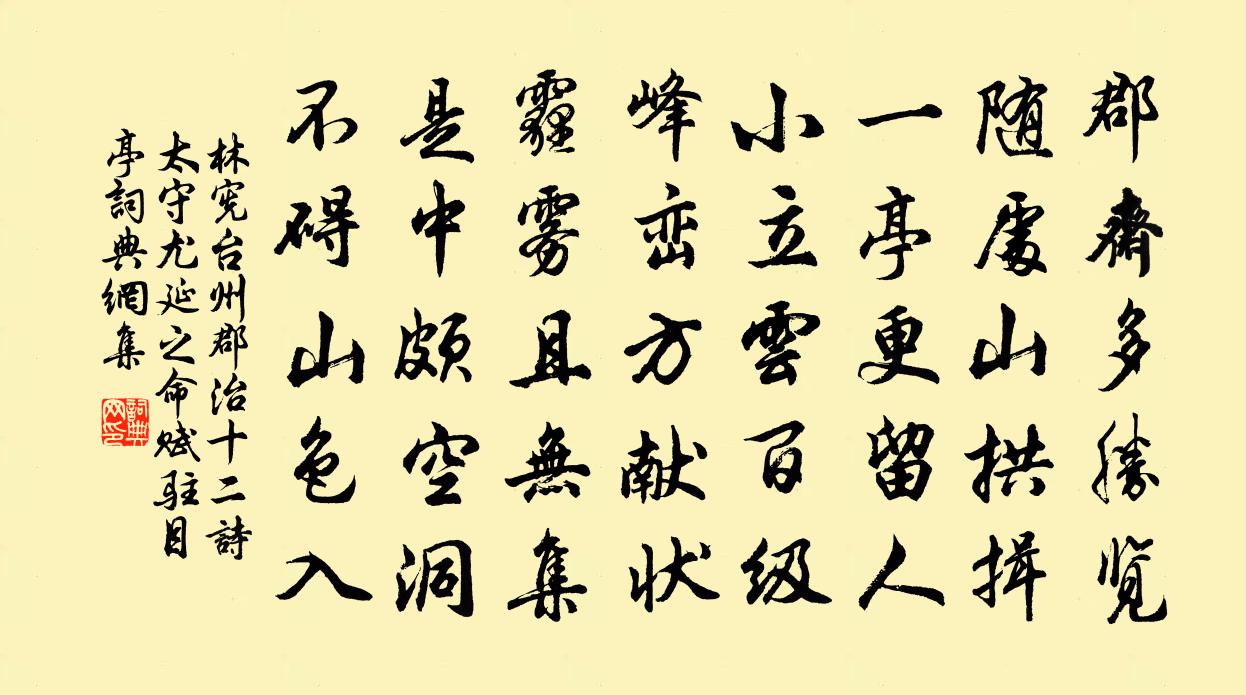 郡齋多勝览
随處山拱揖
一亭更留人
小立雲百级
峰峦方献状
霾雾且無集
是中颇空洞
不碍山色入
林宪台州郡治十二詩
太守尤延之命赋駐目
亭詞典網集
詞典
网印